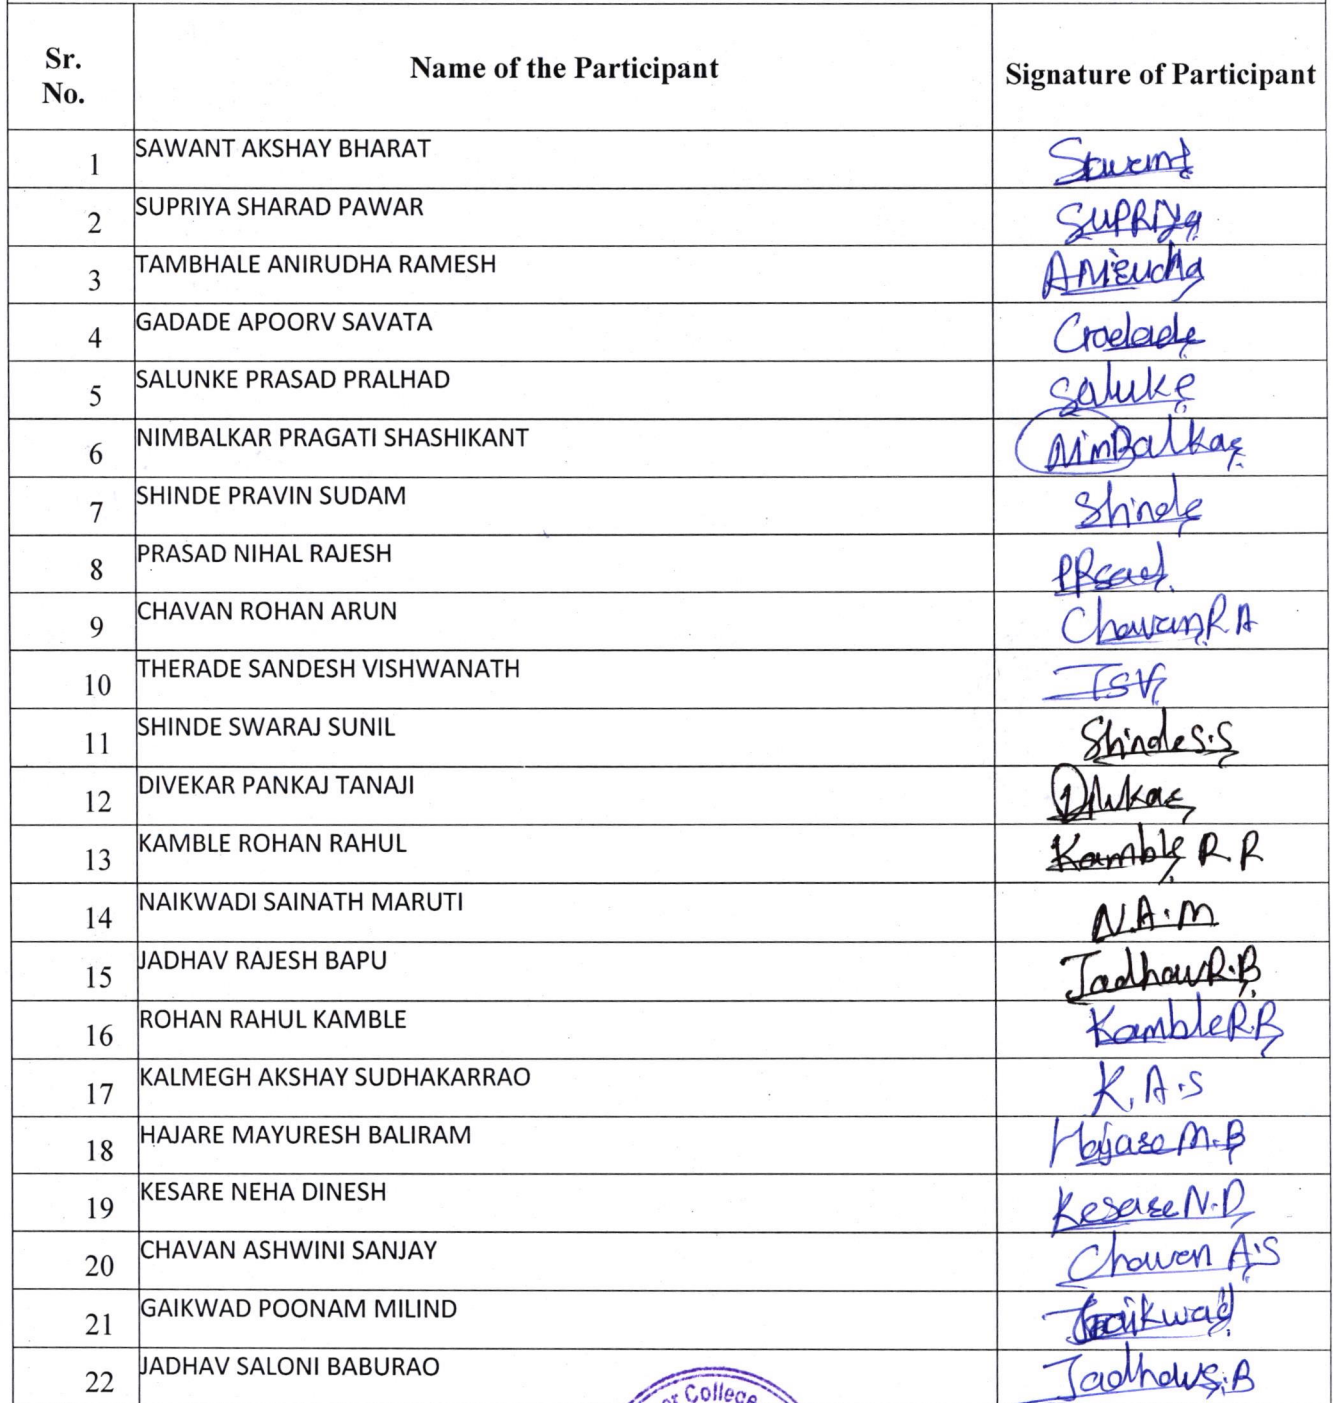 Sr. No. Name of the Participant Signature of Participant
1 SAWANT AKSHAY BHARAT Sawant
2 SUPRIYA SHARAD PAWAR SUPRIya
3 TAMBHALE ANIRUDHA RAMESH Anirudha
4 GADADE APOORV SAVATA Gadade
5 SALUNKE PRASAD PRALHAD Saluke
6 NIMBALKAR PRAGATI SHASHIKANT NimBalkar
7 SHINDE PRAVIN SUDAM Shinde
8 PRASAD NIHAL RAJESH PRsad
9 CHAVAN ROHAN ARUN Chavan R A
10 THERADE SANDESH VISHWANATH TSV
11 SHINDE SWARAJ SUNIL Shinde S.S
12 DIVEKAR PANKAJ TANAJI
13 KAMBLE ROHAN RAHUL Kamble R.R
14 NAIKWADI SAINATH MARUTI N.A.M
15 JADHAV RAJESH BAPU Jadhav R.B
16 ROHAN RAHUL KAMBLE Kamble R.R
17 KALMEGH AKSHAY SUDHAKARRAO K.A.S
18 HAJARE MAYURESH BALIRAM Hajare M.B
19 KESARE NEHA DINESH Kesare N.D
20 CHAVAN ASHWINI SANJAY Chavan A.S
21 GAIKWAD POONAM MILIND Gaikwad
22 JADHAV SALONI BABURAO Jadhav S.B
College